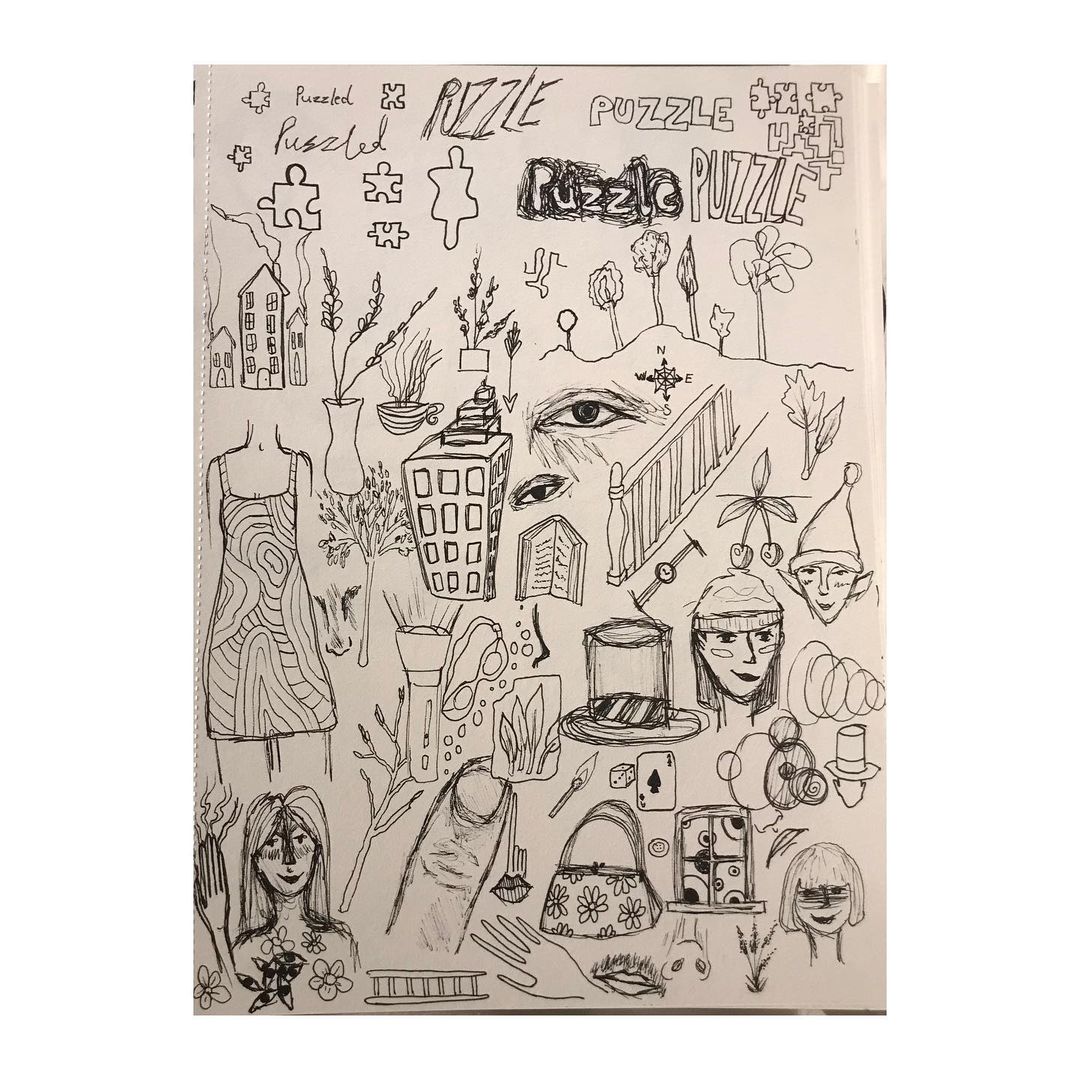 Puzzled
PUZZLE
PUZZLE
Puzzled
Puzzle
PUZZLE
N
W E
S